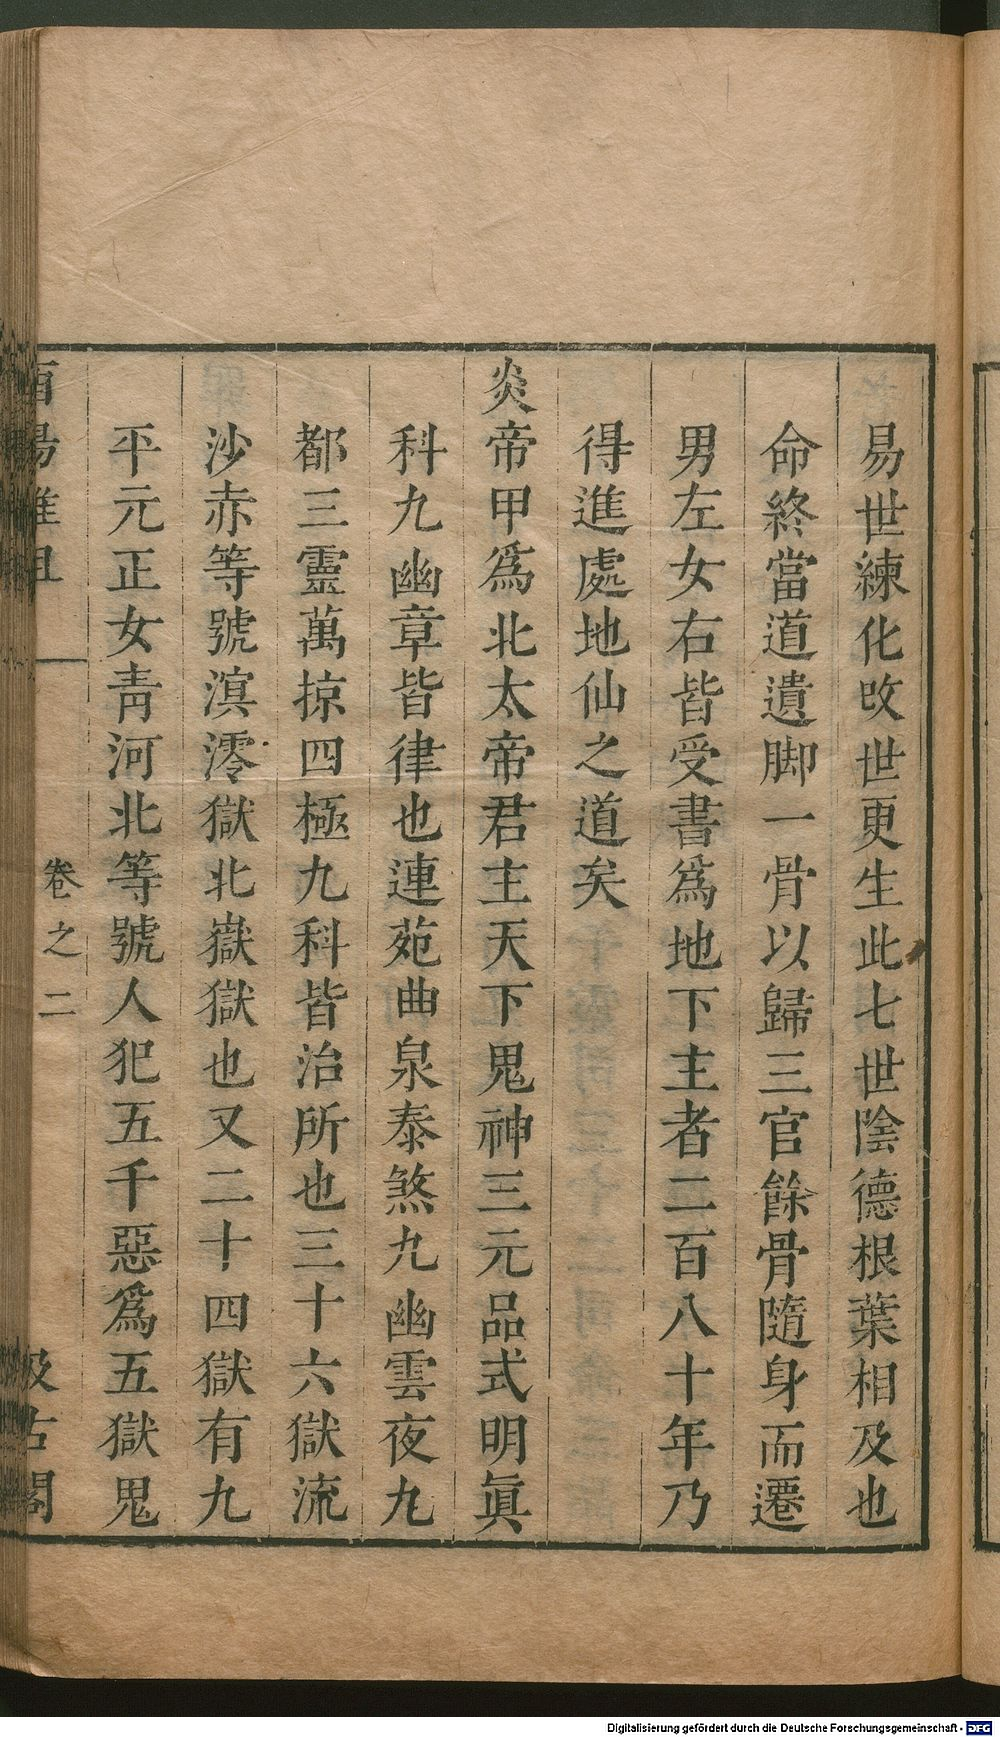 易世練化改世更生此七世陰德根葉相及也
命終當道遺脚一骨以歸三官餘骨隨身而遷
男左女右皆受書爲地下主者二百八十年乃
得進處地仙之道矣
炎帝甲爲北太帝君主天下鬼神三元品式明眞
科九幽章皆律也連苑曲泉泰煞九幽雲夜九
都三靈萬掠四極九科皆治所也三十六獄流
沙赤等號溟澪獄北嶽獄也又二十四獄有九
平元正女靑河北等號人犯五千惡爲五獄鬼
酉陽雜俎 卷之二 汲古閣
Digitalisierung gefördert durch die Deutsche Forschungsgemeinschaft - DFG